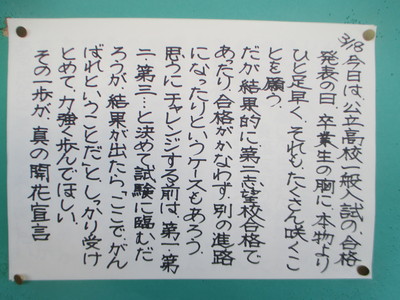 3/18 今日は、公立高校一般入試の、合格
発表の日。卒業生の胸に、本物より
ひと足早く、それも、たくさん咲くこ
とを願う。
だが結果的に第二志望校合格で
あったり、合格がかなわず、別の進路
になったりというケースもあろう。
思うに、チャレンジする前は、第一、第
二、第三…と決めて試験に臨むだ
ろうが、結果が出たら、ここで、がん
ばれということだと、しっかり受け
とめて、力強く歩んでほしい。
その一歩が、真の開花宣言